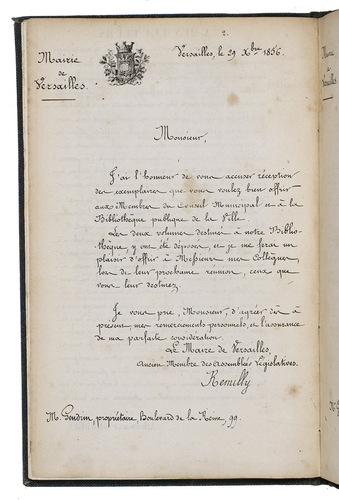 2.
Mairie
de
Versailles.
Versailles, le 29 Xbre 1856.
Monsieur,
J'ai l'honneur de vous accuser réception
des exemplaires que vous voulez bien offrir
aux Membres du Conseil Municipal et à la
Bibliothèque publique de la Ville.
Les deux volumes destinés à notre Biblio-
thèque, y ont été déposés, et je me ferai un
plaisir d'offrir à Messieurs mes Collègues,
lors de leur prochaine réunion, ceux que
vous leur destinez.
Je vous prie, Monsieur, d'agréer dès à
présent, mes remerciements personnels, et l'assurance
de ma parfaite considération.
Le Maire de Versailles,
Ancien Membre des Assemblées Législatives.
Remilly
M. Gendrin, propriétaire, Boulevard de la Reine, 99.
Mairie
de